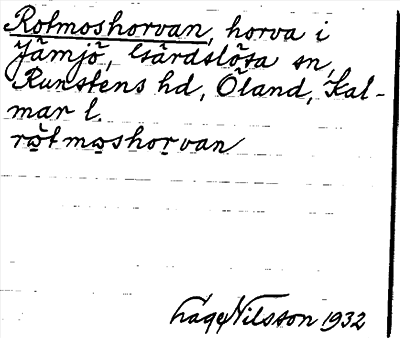 Rotmoshorvan, horva i
Jämjö, Gärdslösa sn,
Runstens hd, Öland, Kal-
mar l.
rọ̀tmọshọrvan
Lage Nilsson 1932